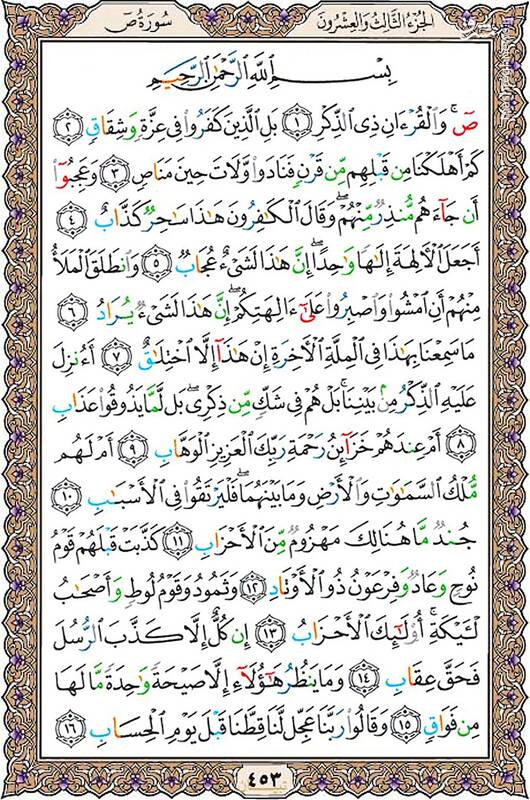 الجزء الثالث والعشرون
سورة ص
بِسْمِ اللَّهِ الرَّحْمَٰنِ الرَّحِيمِ
صٓ ۚ وَالْقُرْءَانِ ذِى الذِّكْرِ ﴿١﴾ بَلِ الَّذِينَ كَفَرُوا۟ فِى عِزَّةٍ وَشِقَاقٍ ﴿٢﴾
كَمْ أَهْلَكْنَا مِن قَبْلِهِم مِّن قَرْنٍ فَنَادَوا۟ وَّلَاتَ حِينَ مَنَاصٍ ﴿٣﴾ وَعَجِبُوٓا۟
أَن جَآءَهُم مُّنذِرٌ مِّنْهُمْ ۖ وَقَالَ الْكَٰفِرُونَ هَٰذَا سَٰحِرٌ كَذَّابٌ ﴿٤﴾
أَجَعَلَ الْءَالِهَةَ إِلَٰهًا وَٰحِدًا ۖ إِنَّ هَٰذَا لَشَىْءٌ عُجَابٌ ﴿٥﴾ وَانطَلَقَ الْمَلَأُ
مِنْهُمْ أَنِ امْشُوا۟ وَاصْبِرُوا۟ عَلَىٰٓ ءَالِهَتِكُمْ ۖ إِنَّ هَٰذَا لَشَىْءٌ يُرَادُ ﴿٦﴾
مَا سَمِعْنَا بِهَٰذَا فِى الْمِلَّةِ الْءَاخِرَةِ إِنْ هَٰذَآ إِلَّا اخْتِلَٰقٌ ﴿٧﴾ أَءُنزِلَ
عَلَيْهِ الذِّكْرُ مِنۢ بَيْنِنَا ۚ بَلْ هُمْ فِى شَكٍّ مِّن ذِكْرِى ۖ بَل لَّمَّا يَذُوقُوا۟ عَذَابِ
﴿٨﴾ أَمْ عِندَهُمْ خَزَآئِنُ رَحْمَةِ رَبِّكَ الْعَزِيزِ الْوَهَّابِ ﴿٩﴾ أَمْ لَهُم
مُّلْكُ السَّمَٰوَٰتِ وَالْأَرْضِ وَمَا بَيْنَهُمَا ۖ فَلْيَرْتَقُوا۟ فِى الْأَسْبَٰبِ ﴿١٠﴾
جُندٌ مَّا هُنَالِكَ مَهْزُومٌ مِّنَ الْأَحْزَابِ ﴿١١﴾ كَذَّبَتْ قَبْلَهُمْ قَوْمُ
نُوحٍ وَعَادٌ وَفِرْعَوْنُ ذُو الْأَوْتَادِ ﴿١٢﴾ وَثَمُودُ وَقَوْمُ لُوطٍ وَأَصْحَٰبُ
لْـَٔيْكَةِ ۚ أُو۟لَٰٓئِكَ الْأَحْزَابُ ﴿١٣﴾ إِن كُلٌّ إِلَّا كَذَّبَ الرُّسُلَ
فَحَقَّ عِقَابِ ﴿١٤﴾ وَمَا يَنظُرُ هَٰٓؤُلَآءِ إِلَّا صَيْحَةً وَٰحِدَةً مَّا لَهَا
مِن فَوَاقٍ ﴿١٥﴾ وَقَالُوا۟ رَبَّنَا عَجِّل لَّنَا قِطَّنَا قَبْلَ يَوْمِ الْحِسَابِ ﴿١٦﴾
٤٥٣